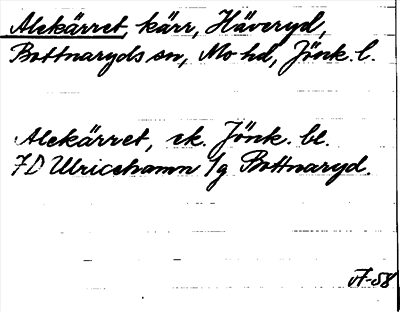 Alekärret, kärr, Häveryd,
Bottnaryds sn, Mo hd, Jönk. l.
Alekärret, ek. Jönk. bl.
7D Ulricehamn /g Bottnaryd.
-58